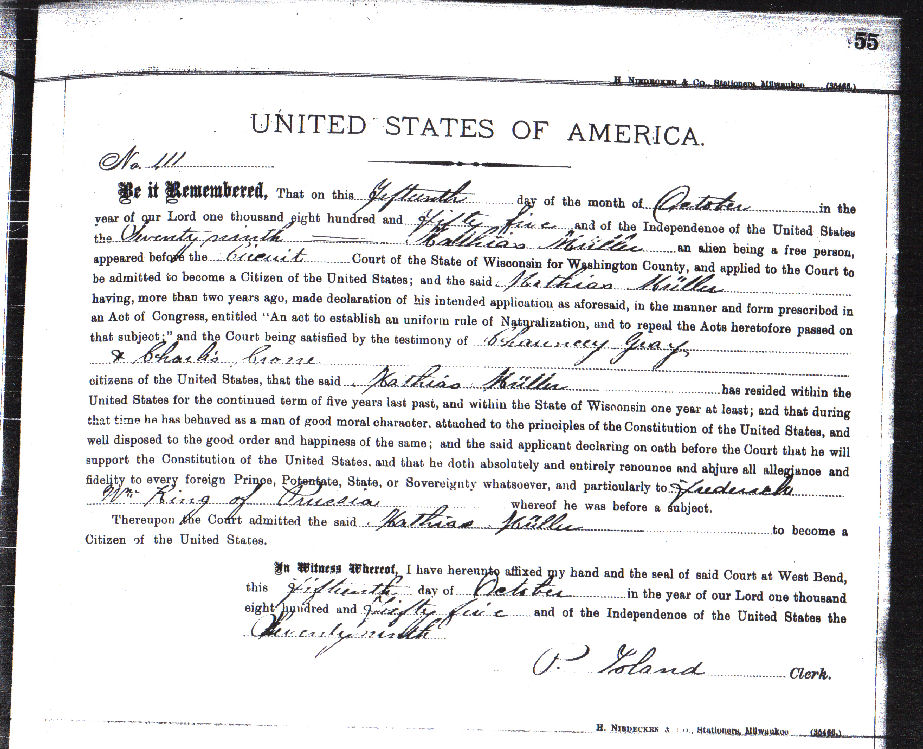 55
H. NIEDECKEN & CO., Stationers, Milwaukee (35466.)
UNITED STATES OF AMERICA.
No. 111
Be it Remembered, That on this Fifteenth day of the month of October in the
year of our Lord one thousand eight hundred and fifty five and of the Independence of the United States
the Seventy ninth Mathias Müller an alien being a free person,
appeared before the Circuit Court of the State of Wisconsin for Washington County, and applied to the Court to
be admitted to become a Citizen of the United States; and the said Mathias Müller
having, more than two years ago, made declaration of his intended application as aforesaid, in the manner and form prescribed in
an Act of Congress, entitled "An act to establish an uniform rule of Naturalization, and to repeal the Acts heretofore passed on
that subject;" and the Court being satisfied by the testimony of Chauncey Gray,
& Charles Crone
citizens of the United States, that the said Mathias Müller has resided within the
United States for the continued term of five years last past, and within the State of Wisconsin one year at least; and that during
that time he has behaved as a man of good moral character, attached to the principles of the Constitution of the United States, and
well disposed to the good order and happiness of the same; and the said applicant declaring on oath before the Court that he will
support the Constitution of the United States, and that he doth absolutely and entirely renounce and abjure all allegiance and
fidelity to every foreign Prince, Potentate, State, or Sovereignty whatsoever, and particularly to Frederick
Wm King of Prussia whereof he was before a subject.
Thereupon the Court admitted the said Mathias Müller to become a
Citizen of the United States.
In Witness Whereof, I have hereunto affixed my hand and the seal of said Court at West Bend,
this fifteenth day of October in the year of our Lord one thousand
eight hundred and fifty five and of the Independence of the United States the
Seventy ninth
P. Toland Clerk.
H. NIEDECKEN & CO., Stationers, Milwaukee (35466.)